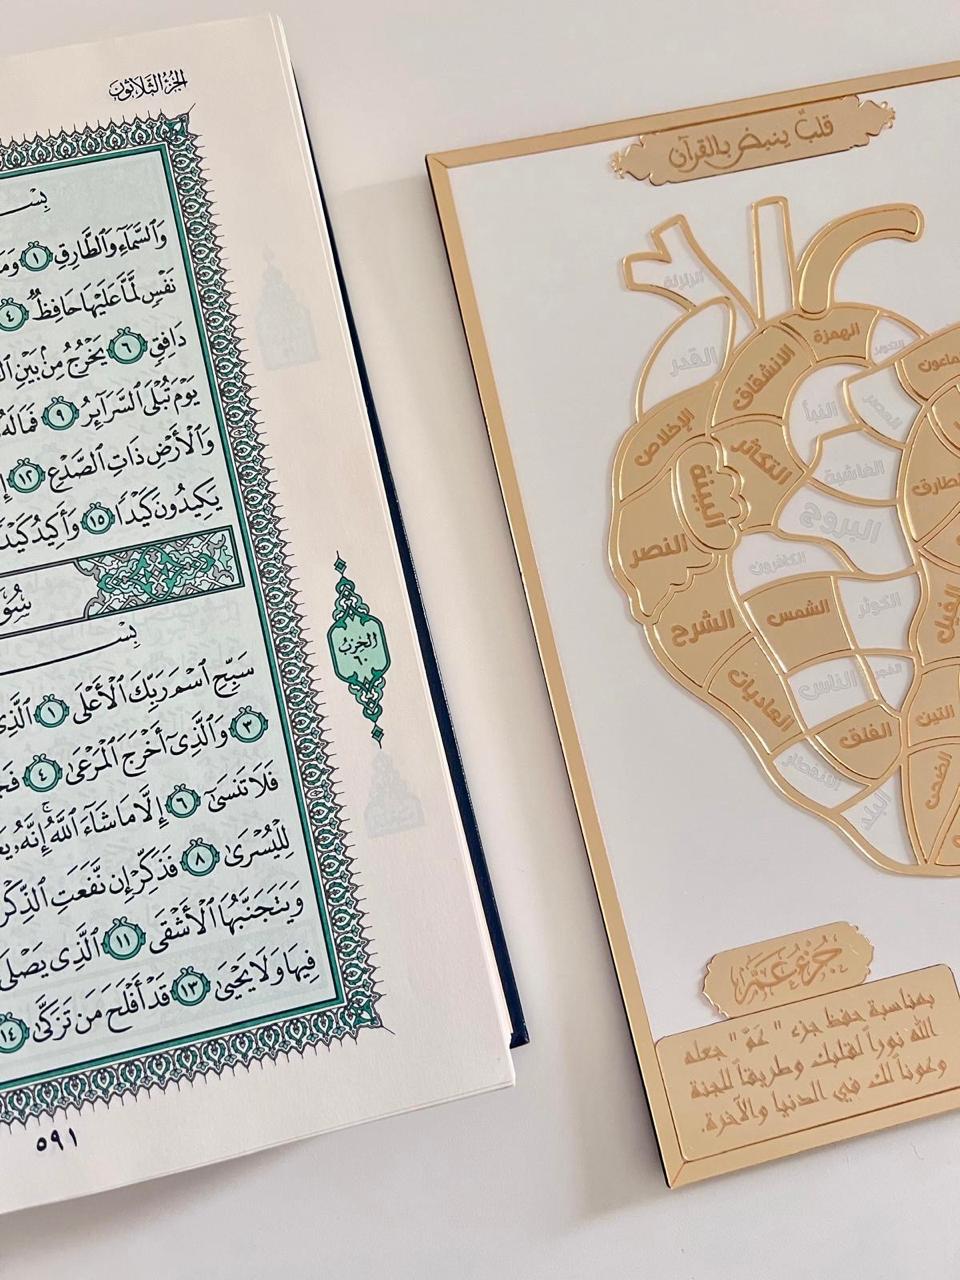 الجُزْءُ الثَّلَاثُونَ
بِسْـ
وَٱلسَّمَآءِ وَٱلطَّارِقِ ١ وَمَ
نَفْسٍ لَّمَّا عَلَيْهَا حَافِظٌ ٤
دَافِقٍ ٦ يَخْرُجُ مِنۢ بَيْنِ ٱل
يَوْمَ تُبْلَى ٱلسَّرَآئِرُ ٩ فَمَا لَهُ
وَٱلْأَرْضِ ذَاتِ ٱلصَّدْعِ ١٢ إِ
يَكِيدُونَ كَيْدًا ١٥ وَأَكِيدُ كَيْدً
سُو
بِسْـ
سَبِّحِ ٱسْمَ رَبِّكَ ٱلْأَعْلَى ١ ٱلَّذِى
٣ وَٱلَّذِىٓ أَخْرَجَ ٱلْمَرْعَىٰ ٤ فَجَ
فَلَا تَنسَىٰٓ ٦ إِلَّا مَا شَآءَ ٱللَّهُ إِنَّهُۥ يَعْ
لِلْيُسْرَىٰ ٨ فَذَكِّرْ إِن نَّفَعَتِ ٱلذِّكْرَ
وَيَتَجَنَّبُهَا ٱلْأَشْقَى ١١ ٱلَّذِى يَصْلَى
فِيهَا وَلَا يَحْيَىٰ ١٣ قَدْ أَفْلَحَ مَن تَزَكَّىٰ ١٤
الحِزْبُ
٦٠
٥٩١
قلبٌ ينبض بالقرآن
الزلزلة
القدر
الهمزة
الانشقاق
التكوير
ماعون
الإخلاص
النبأ
العصر
التكاثر
البينة
الغاشية
الطارق
النصر
البروج
الكافرون
الفيل
الشرح
الشمس
الكوثر
العاديات
الناس
الفجر
الفلق
التين
الانفطار
الضحى
البلد
جزء عمّ
بمناسبة حفظ جزء " عمّ " جعله
الله نوراً لقلبك وطريقاً للجنة
وعوناً لك في الدنيا والآخرة.